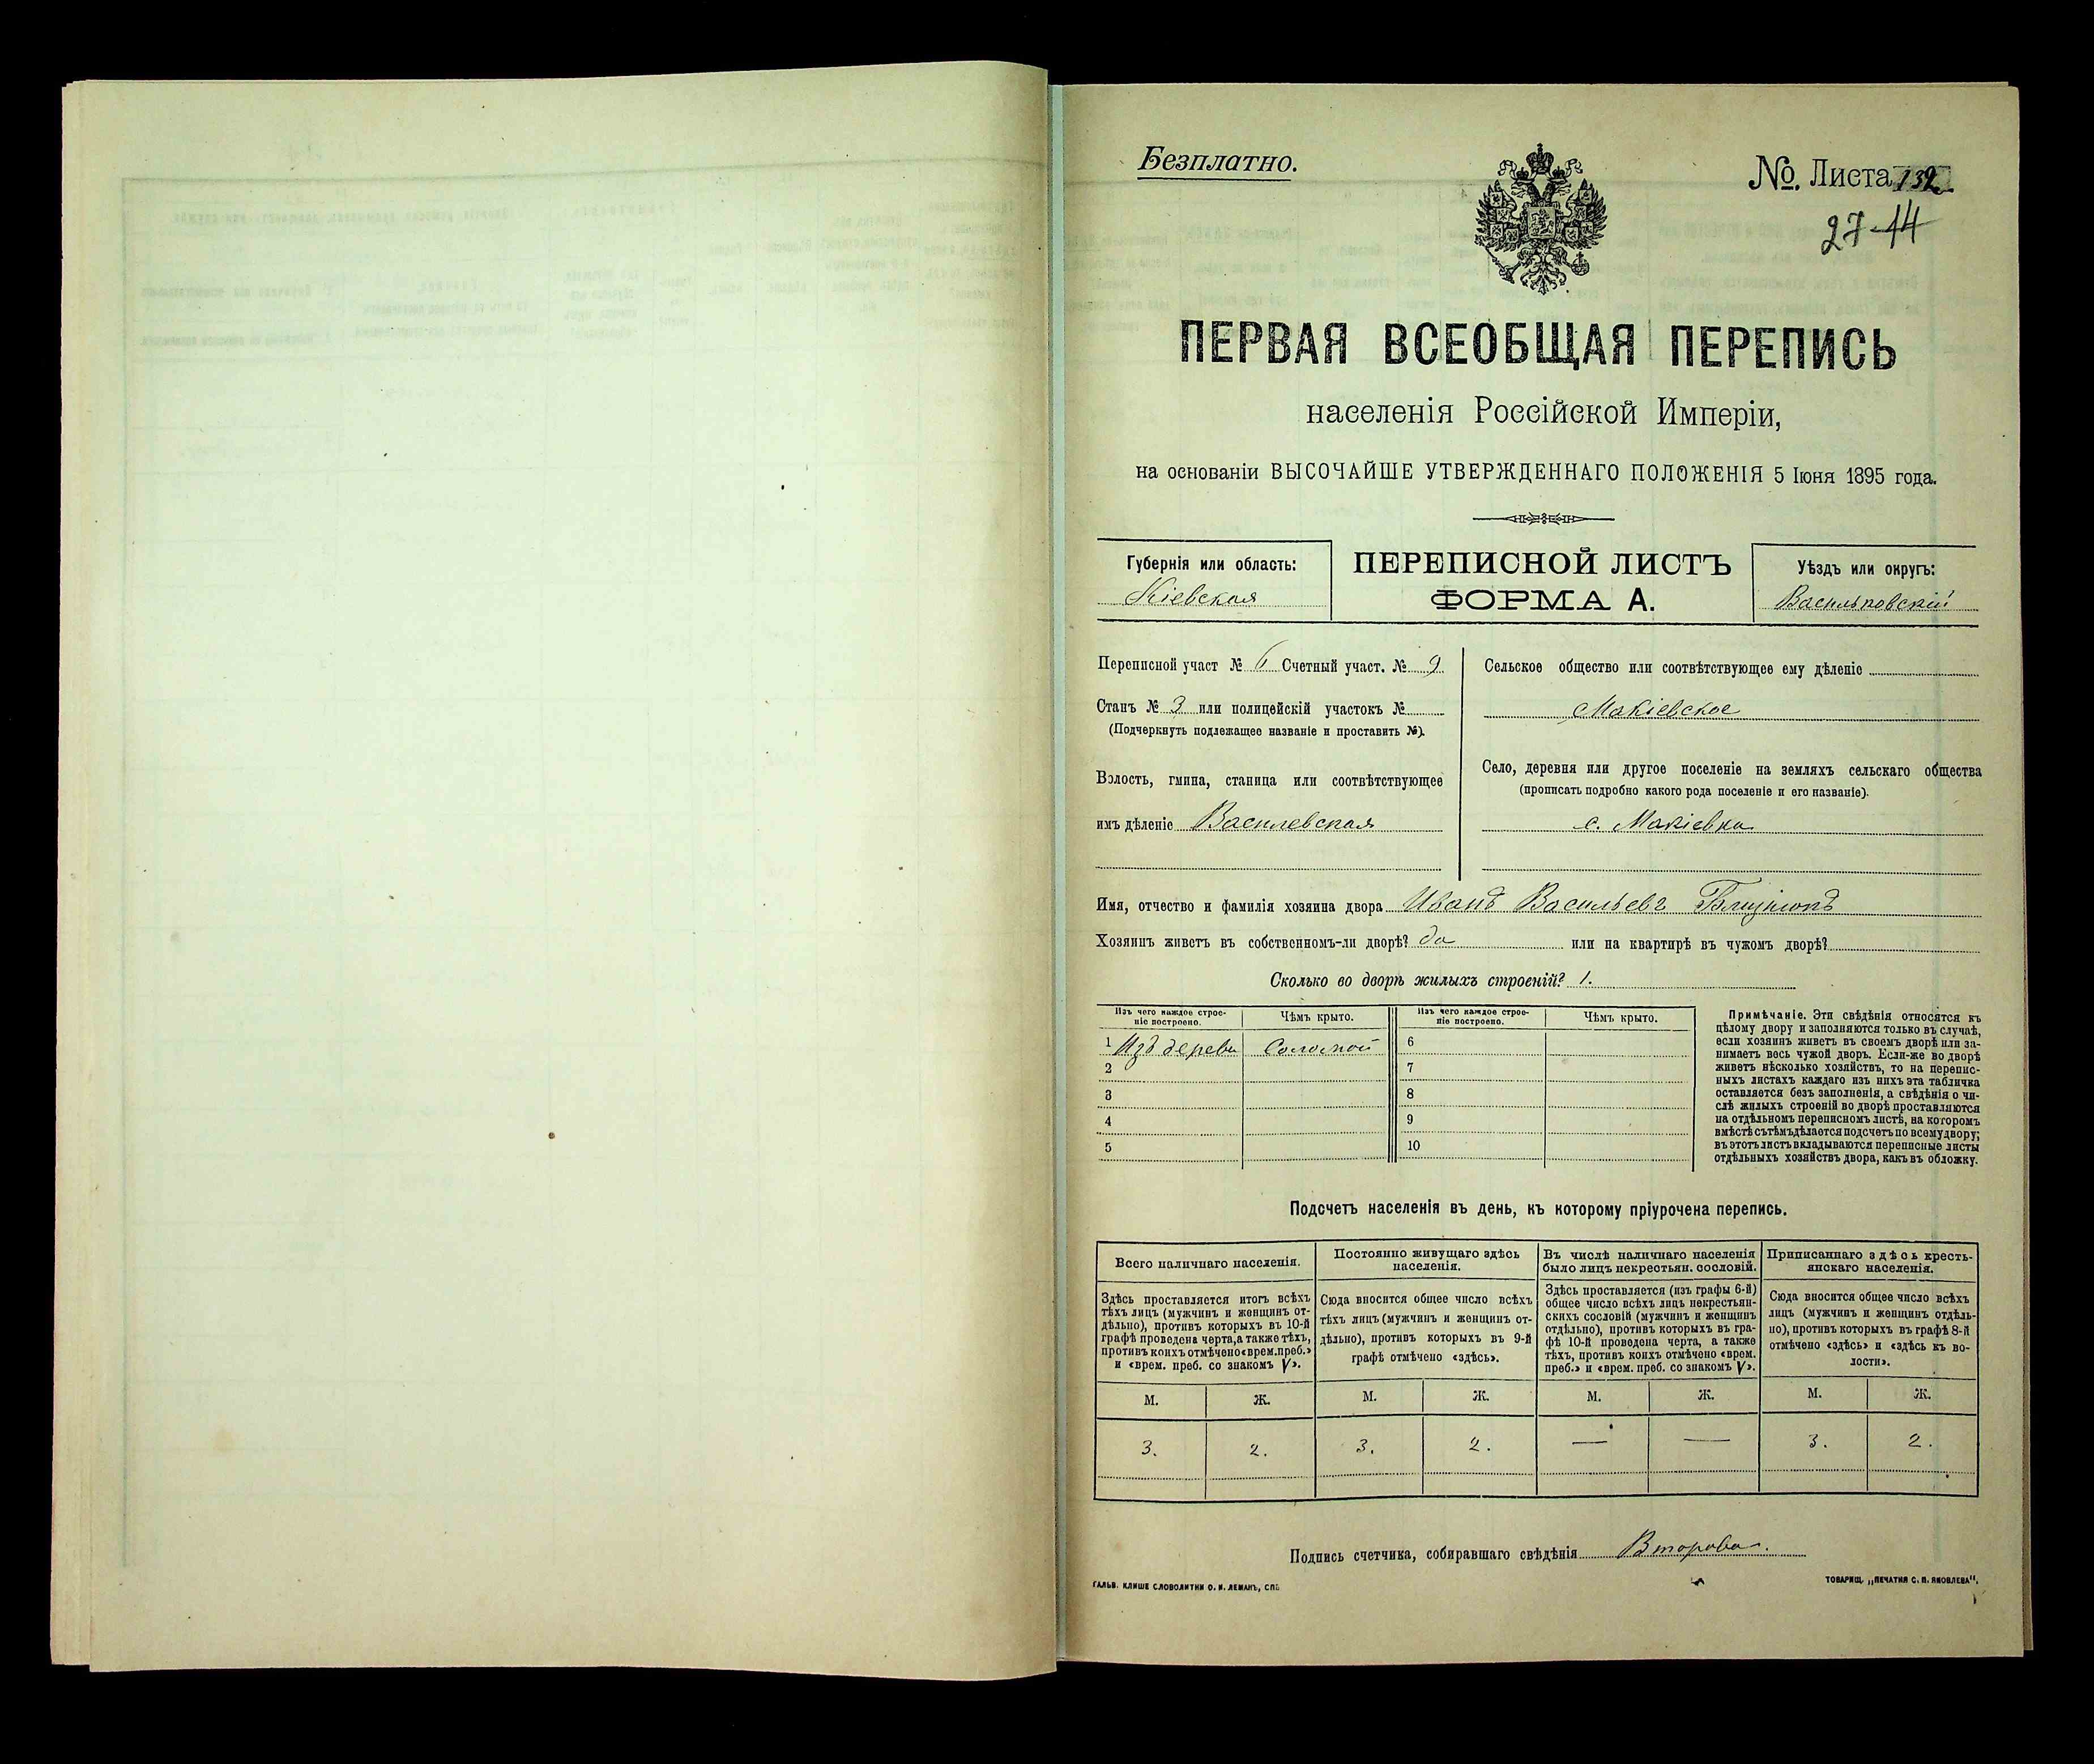 Безплатно.
№. Листа 132.
27-44
ПЕРВАЯ ВСЕОБЩАЯ ПЕРЕПИСЬ
населенія Россійской Имперіи,
на основаніи ВЫСОЧАЙШЕ УТВЕРЖДЕННАГО ПОЛОЖЕНІЯ 5 Іюня 1895 года.
Губернія или область:
Кіевская
ПЕРЕПИСНОЙ ЛИСТЪ
ФОРМА А.
Уѣздъ или округъ:
Васильковскій
Переписной участ № 6 Счетный участ. № 9
Станъ № 3 или полицейскій участокъ №
(Подчеркнуть подлежащее названіе и проставить №).
Волость, гмина, станица или соотвѣтствующее
имъ дѣленіе Василевская
Сельское общество или соотвѣтствующее ему дѣленіе
Макіевское
Село, деревня или другое поселеніе на земляхъ сельскаго общества
(прописать подробно какого рода поселеніе и его названіе).
с. Макіевка
Имя, отчество и фамилія хозяина двора Иванъ Васильевъ
Хозяинъ живетъ въ собственномъ-ли дворѣ? да или на квартирѣ въ чужомъ дворѣ?
Сколько во дворѣ жилыхъ строеній? 1.
Изъ чего каждое строе-
ніе построено.
Чѣмъ крыто.
Изъ чего каждое строе-
ніе построено.
Чѣмъ крыто.
1 Изъ дерева Соломой 6
2 7
3 8
4 9
5 10
Примѣчаніе. Эти свѣдѣнія относятся къ
цѣлому двору и заполняются только въ случаѣ,
если хозяинъ живетъ въ своемъ дворѣ или за-
нимаетъ весь чужой дворъ. Если-же во дворѣ
живетъ нѣсколько хозяйствъ, то на перепис-
ныхъ листахъ каждаго изъ нихъ эта табличка
оставляется безъ заполненія, а свѣдѣнія о чи-
слѣ жилыхъ строеній во дворѣ проставляются
на отдѣльномъ переписномъ листѣ, на которомъ
вмѣстѣ съ тѣмъ дѣлается подсчетъ по всему двору;
въ этотъ листъ вкладываются переписные листы
отдѣльныхъ хозяйствъ двора, какъ въ обложку.
Подсчетъ населенія въ день, къ которому пріурочена перепись.
Всего наличнаго населенія.
Здѣсь проставляется итогъ всѣхъ
тѣхъ лицъ (мужчинъ и женщинъ от-
дѣльно), противъ которыхъ въ 10-й
графѣ проведена черта, а также тѣхъ,
противъ коихъ отмѣчено «врем. преб.»
и «врем. преб. со знакомъ V».
Постоянно живущаго здѣсь
населенія.
Сюда вносится общее число всѣхъ
тѣхъ лицъ (мужчинъ и женщинъ от-
дѣльно), противъ которыхъ въ 9-й
графѣ отмѣчено «здѣсь».
Въ числѣ наличнаго населенія
было лицъ некрестьян. сословій.
Здѣсь проставляется (изъ графы 6-й)
общее число всѣхъ лицъ некрестьян-
скихъ сословій (мужчинъ и женщинъ
отдѣльно), противъ которыхъ въ гра-
фѣ 10-й проведена черта, а также
тѣхъ, противъ коихъ отмѣчено «врем.
преб.» и «врем. преб. со знакомъ V».
Приписаннаго здѣсь кресть-
янскаго населенія.
Сюда вносится общее число всѣхъ
лицъ (мужчинъ и женщинъ отдѣль-
но), противъ которыхъ въ графѣ 8-й
отмѣчено «здѣсь» и «здѣсь къ во-
лости».
М. Ж. М. Ж. М. Ж. М. Ж.
3. 2. 3. 2. — — 3. 2.
Подпись счетчика, собиравшаго свѣдѣнія Второва.
ГАЛЬВ. КЛИШЕ СЛОВОЛИТНИ О. И. ЛЕМАНЪ, СПБ.
ТОВАРИЩ. „ПЕЧАТНЯ С. П. ЯКОВЛЕВА“.